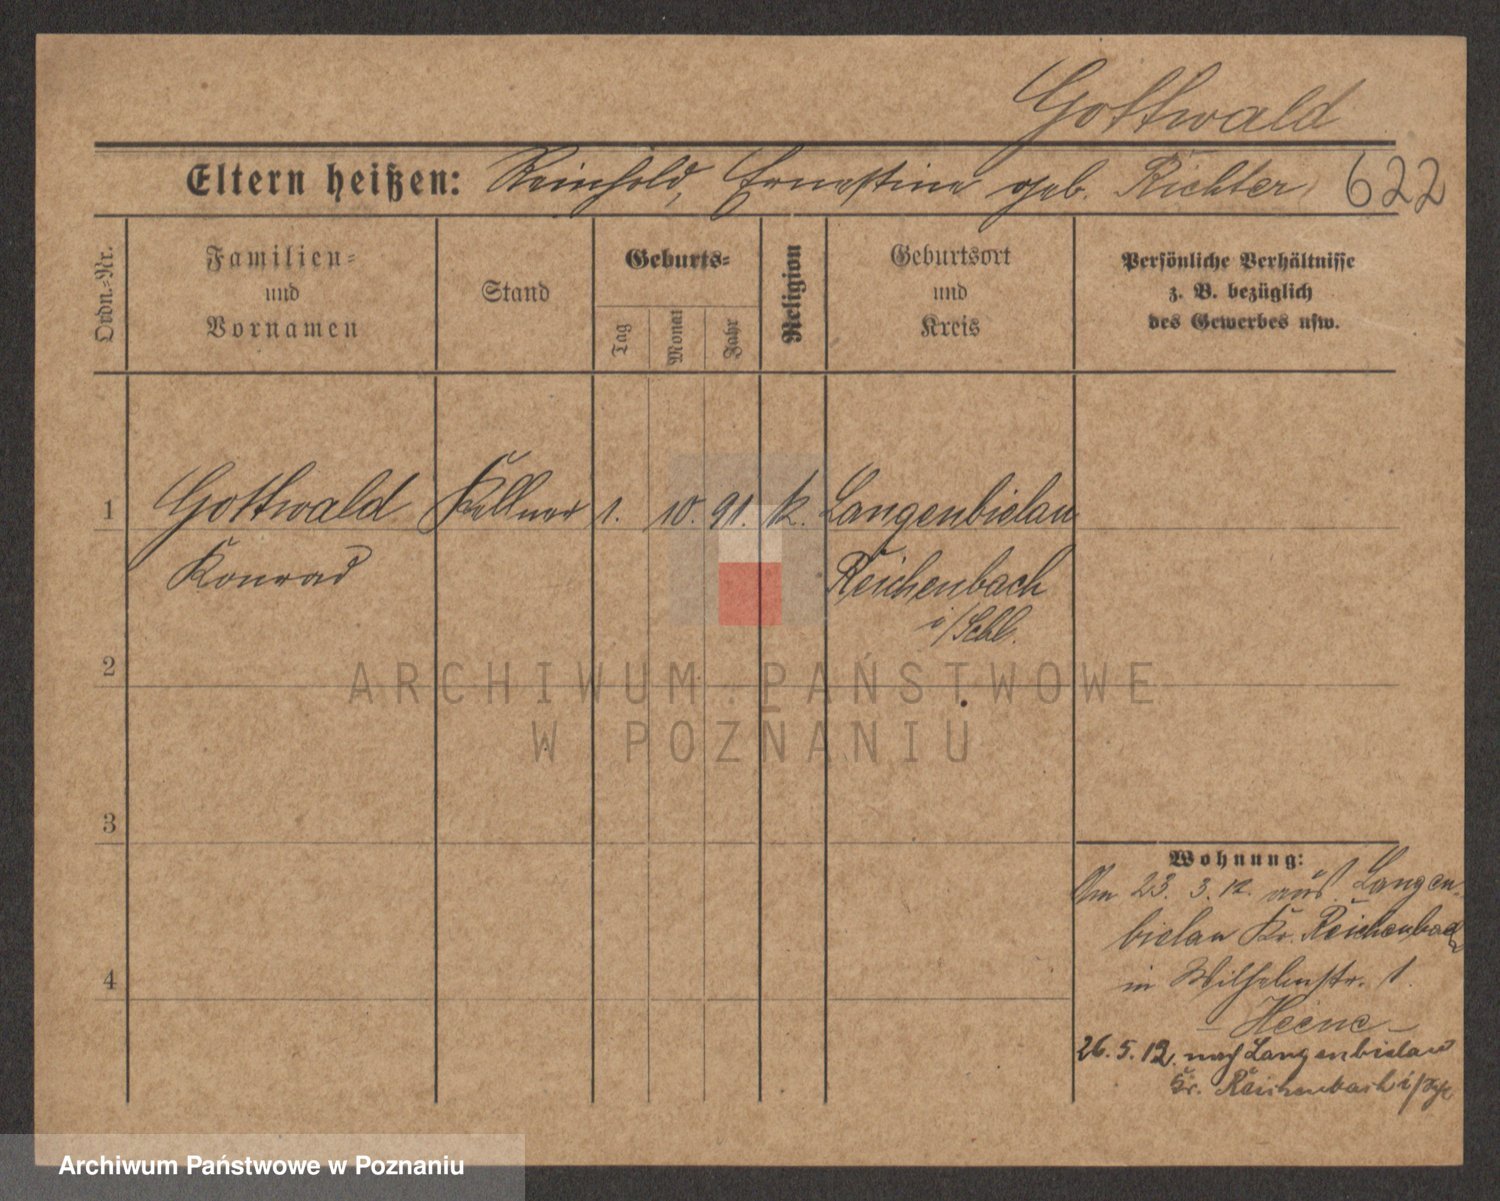 Gottwald
Eltern heißen: Reinhold, Ernestine geb. Richter
622
Ordn.-Nr.
Familien-
und
Vornamen
Stand
Geburts-
Tag
Monat
Jahr
Religion
Geburtsort
und
Kreis
Persönliche Verhältnisse
z. B. bezüglich
des Gewerbes usw.
1 Gottwald Kellner 1. 10. 91. k. Langenbielau
Konrad Reichenbach
i/Schl.
2
3
4
Wohnung:
Am 23. 3. 12. aus Langen-
bielau Kr. Reichenbach
in Wilhelmstr. 1.
– Heene –
26. 5. 12. nach Langenbielau
Kr. Reichenbach i/Schl
ARCHIWUM PAŃSTWOWE
W POZNANIU
Archiwum Państwowe w Poznaniu